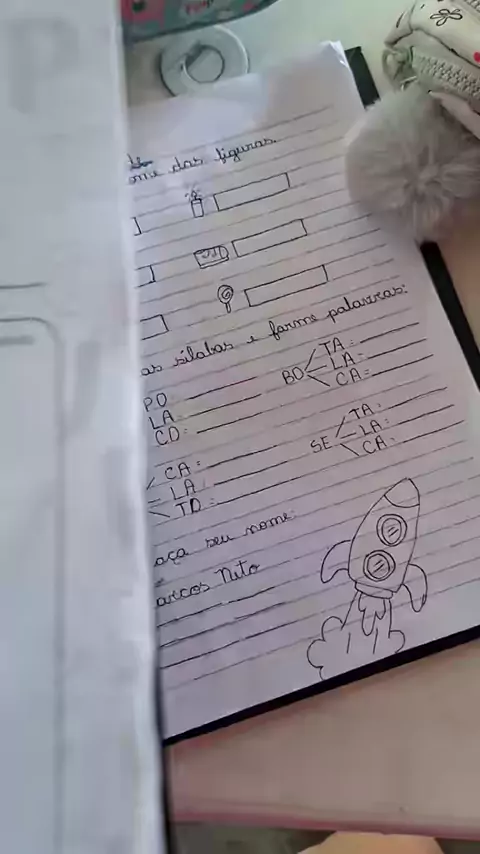 ome das figuras.
as sílabas e forme palavras:
PO
LA =
CO =
BO
TA =
LA =
CA =
CA =
LA =
TO =
SE
TA =
LA =
CA =
aça seu nome:
arcos Neto